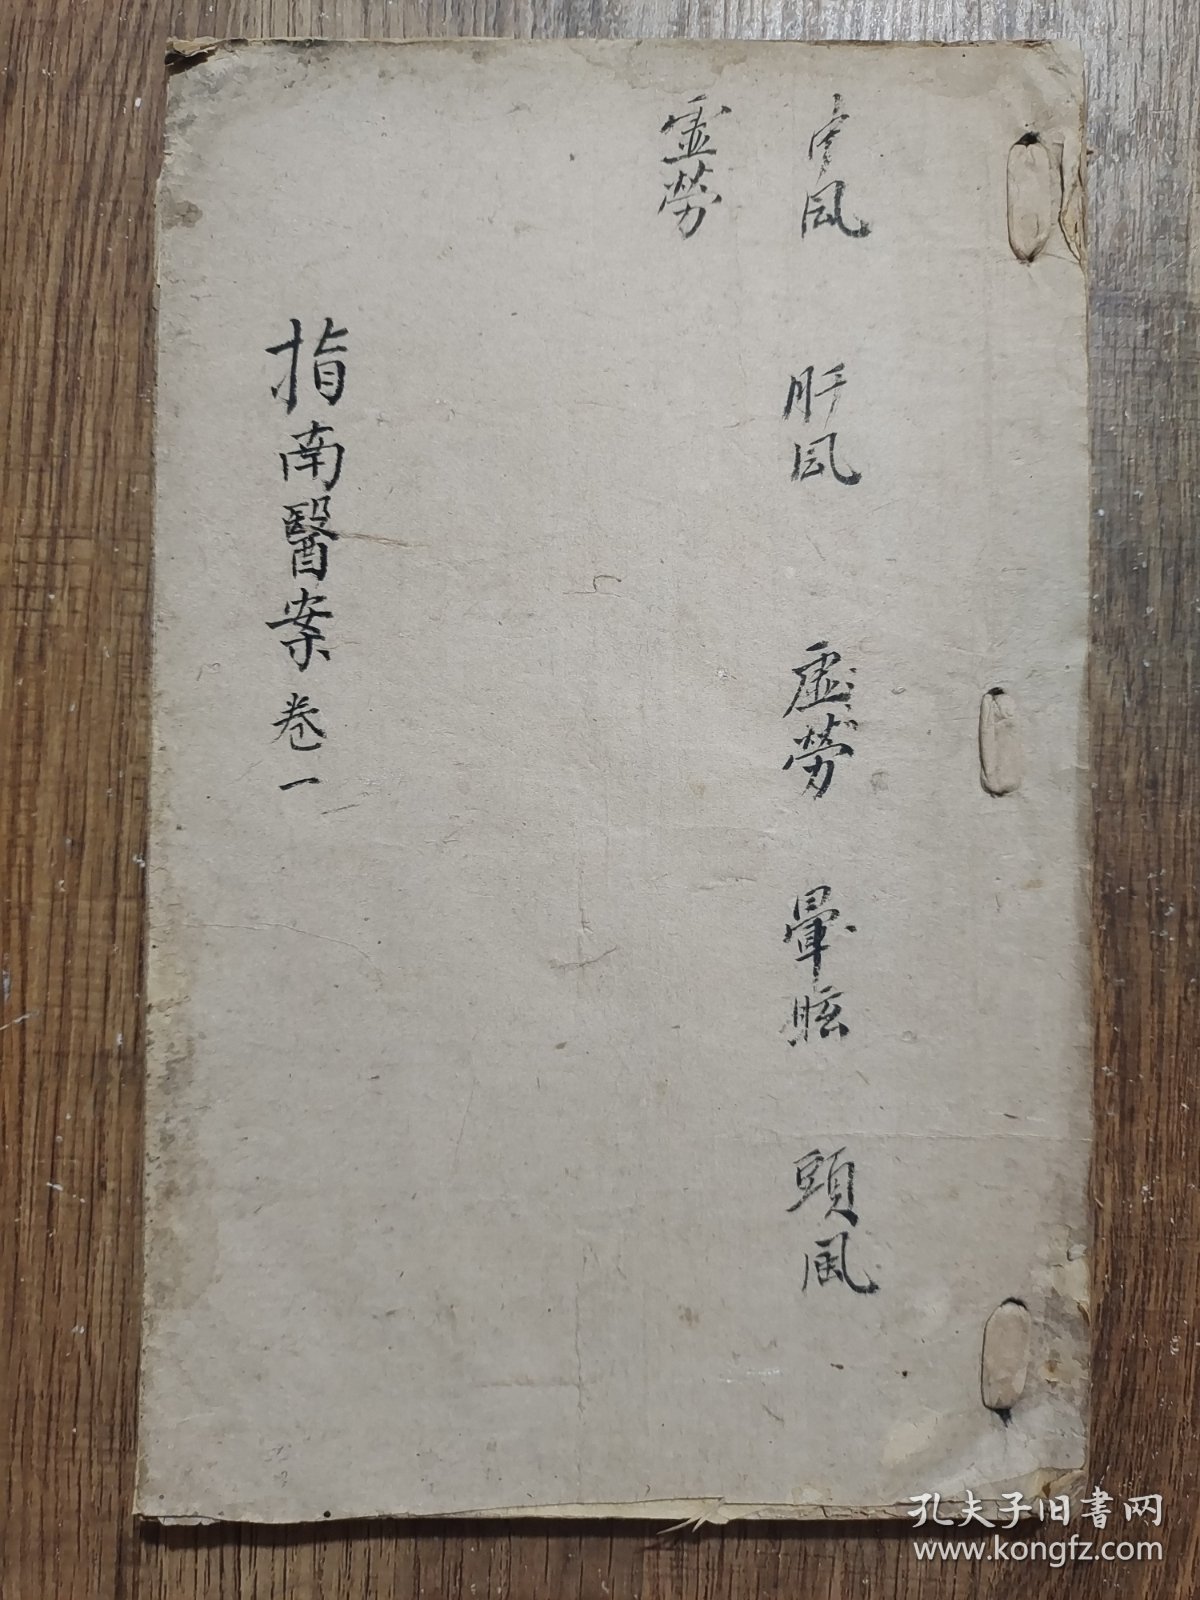 中風 肝風 虛勞 暈眩 頭風
虛勞
指南醫案卷一
孔夫子旧书网
www.kongfz.com